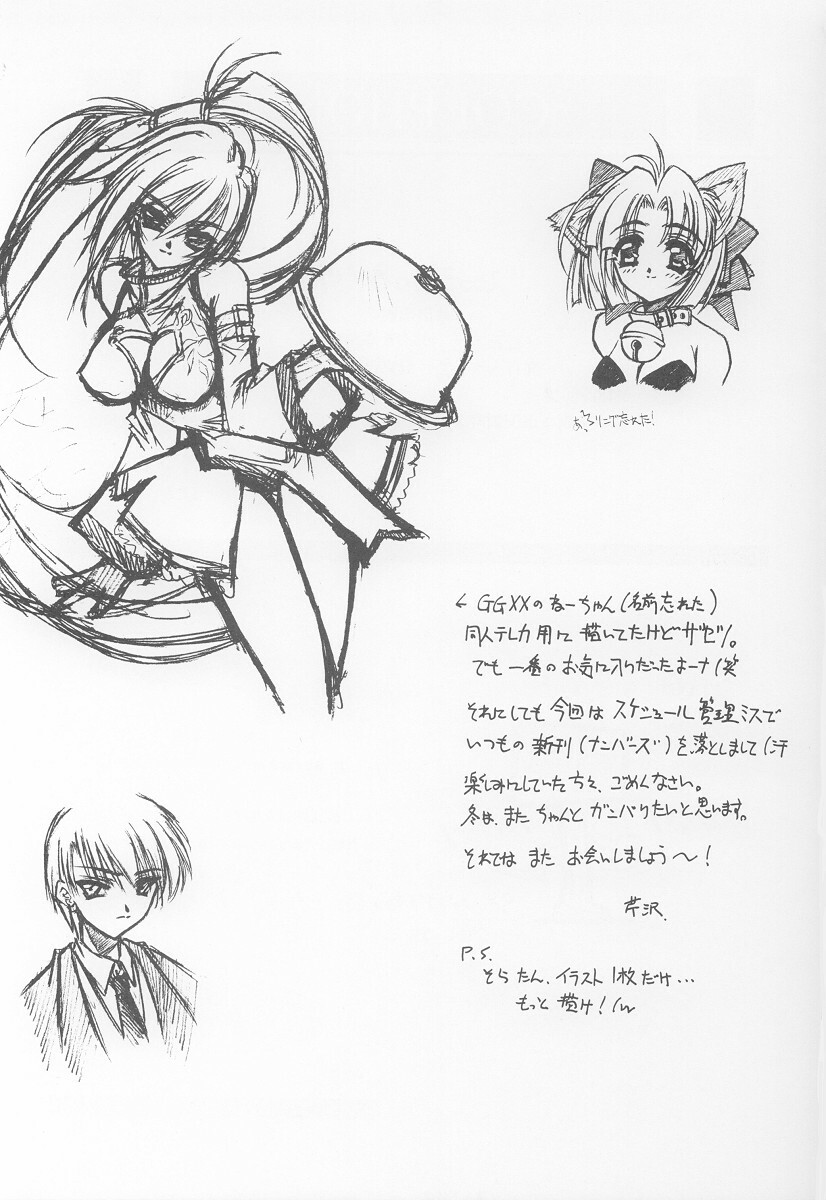 あっ、
忘れた!
← GGXXのねーちゃん(名前忘れた)
同人テレカ用に描いてたけどザセツ。
でも一番のお気に入りだったよーナ(笑
それにしても今回はスケジュール管理ミスで
いつもの新刊(ナンバーズ)を落としまして(汗
楽しみにしていた方々、ごめんなさい。
冬は、またちゃんとガンバりたいと思います。
それではまたお会いしましょう〜!
芹沢.
P.S.
そらたん、イラスト1枚だけ…
もっと描け!(w